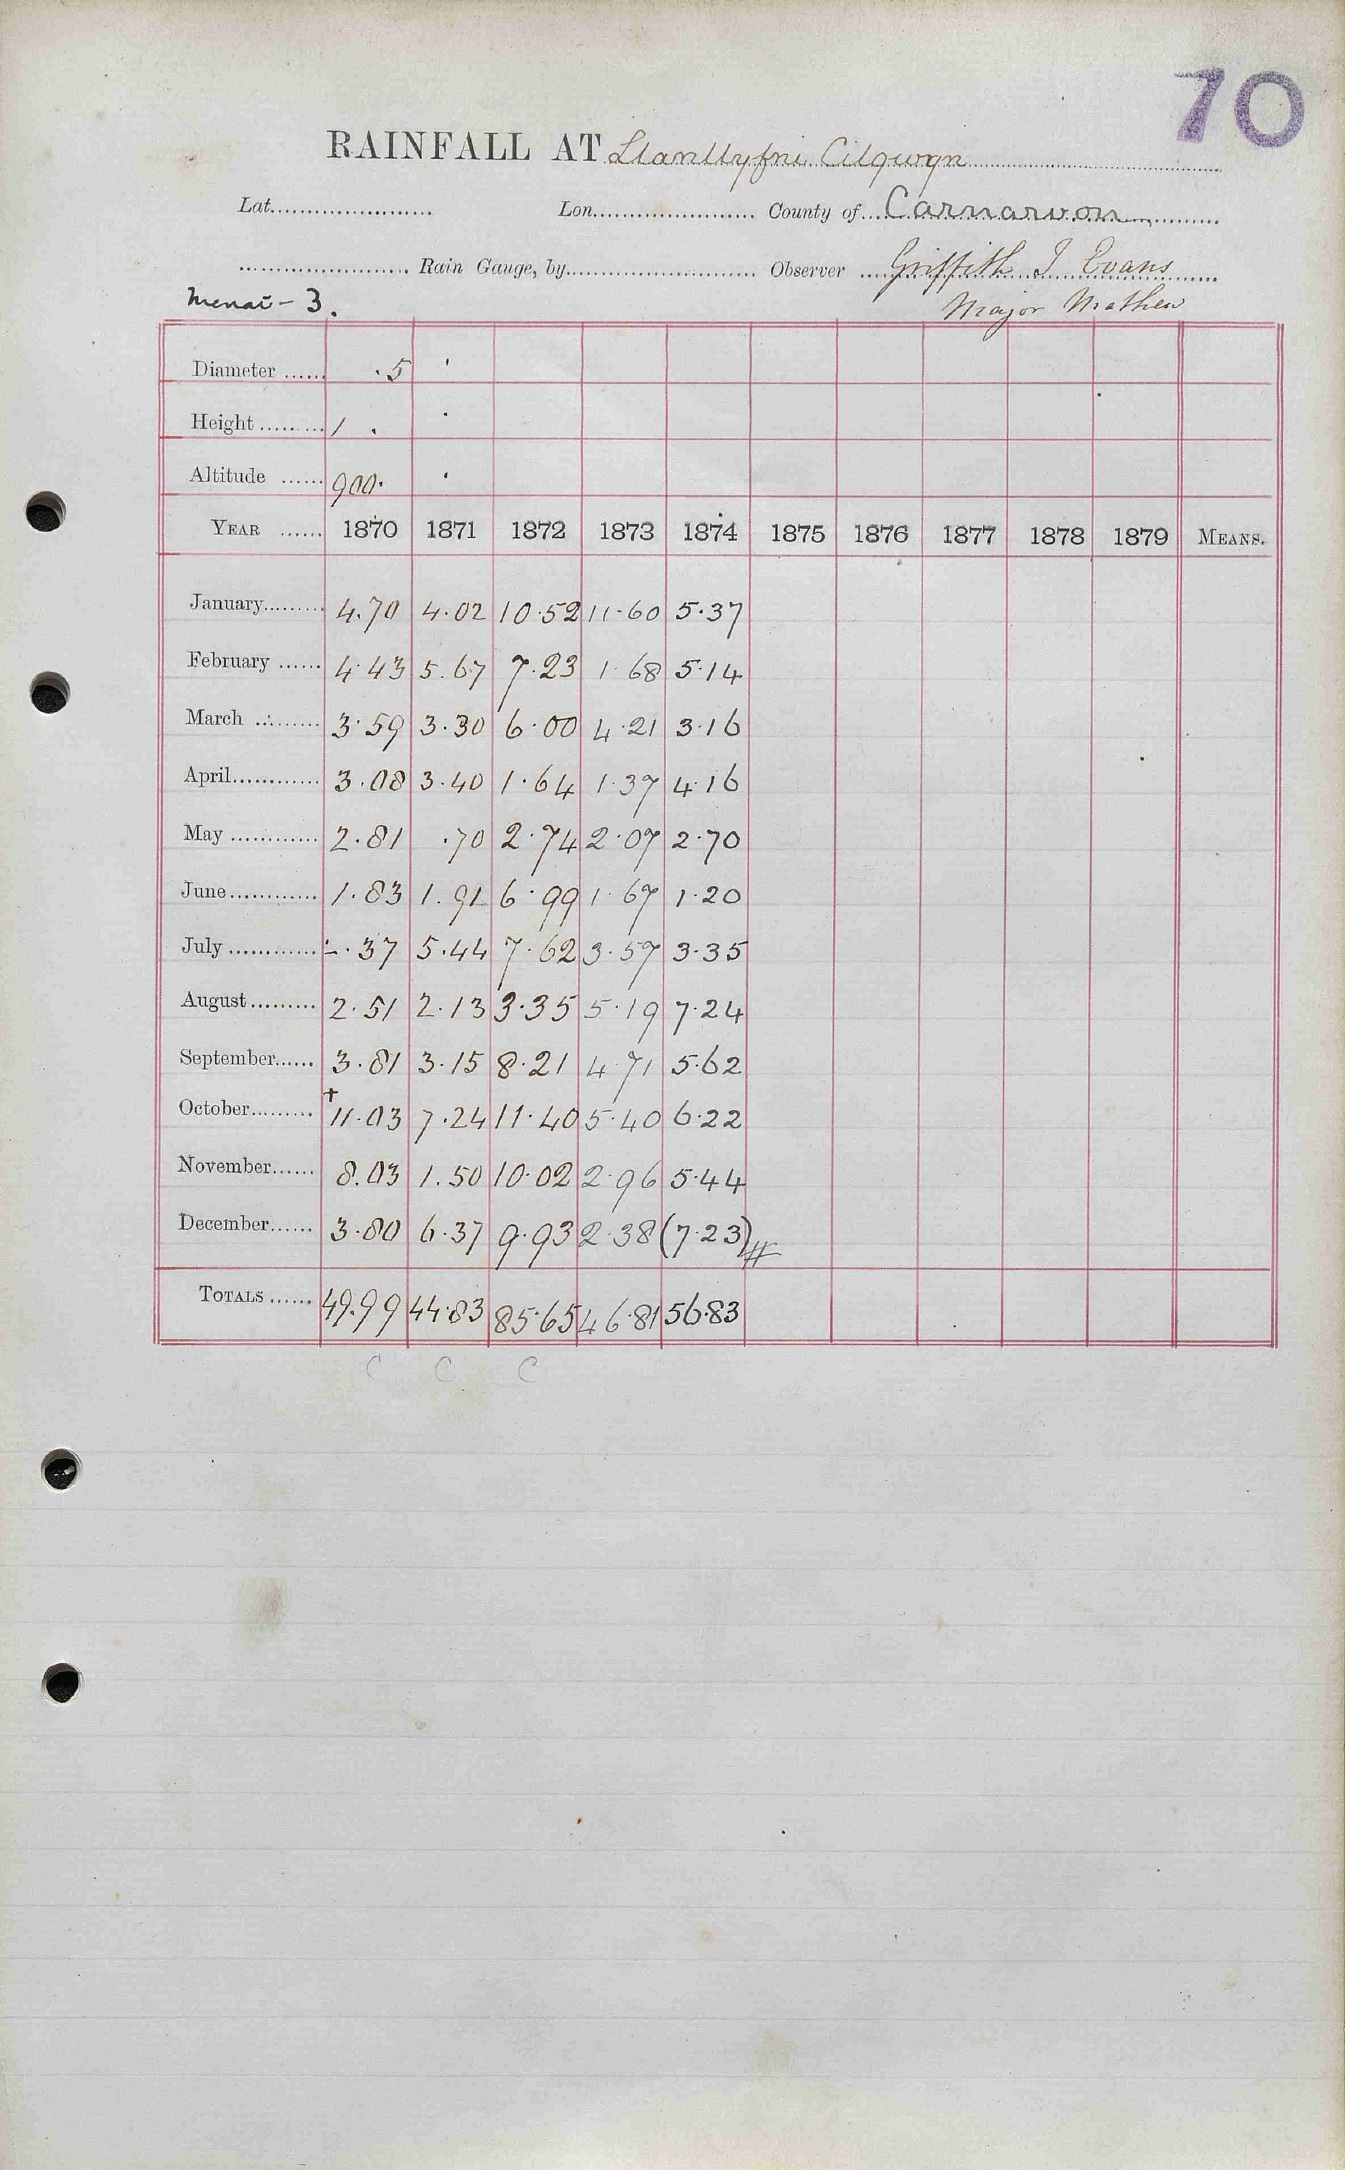 70
RAINFALL AT Llanllyfni Cilgwyn
Lat...................... Lon...................... County of Carnarvon
...................... Rain Gauge, by...................... Observer Griffith J Evans
Menai - 3. Major Mathew
Diameter ...... .5 '
Height ......... 1 . .
Altitude ...... 900. .
YEAR ...... 1870 1871 1872 1873 1874 1875 1876 1877 1878 1879 MEANS.
January......... 4.70 4.02 10.52 11.60 5.37
February ...... 4.43 5.67 7.23 1.68 5.14
March ......... 3.59 3.30 6.00 4.21 3.16
April............ 3.08 3.40 1.64 1.37 4.16
May ............ 2.81 .70 2.74 2.07 2.70
June............ 1.83 1.91 6.99 1.67 1.20
July ............ -.37 5.44 7.62 3.57 3.35
August......... 2.51 2.13 3.35 5.19 7.24
September...... 3.81 3.15 8.21 4.71 5.62
October......... + 11.03 7.24 11.40 5.40 6.22
November...... 8.03 1.50 10.02 2.96 5.44
December...... 3.80 6.37 9.93 2.38 (7.23) #
TOTALS ...... 49.99 44.83 85.65 46.81 56.83
C C C